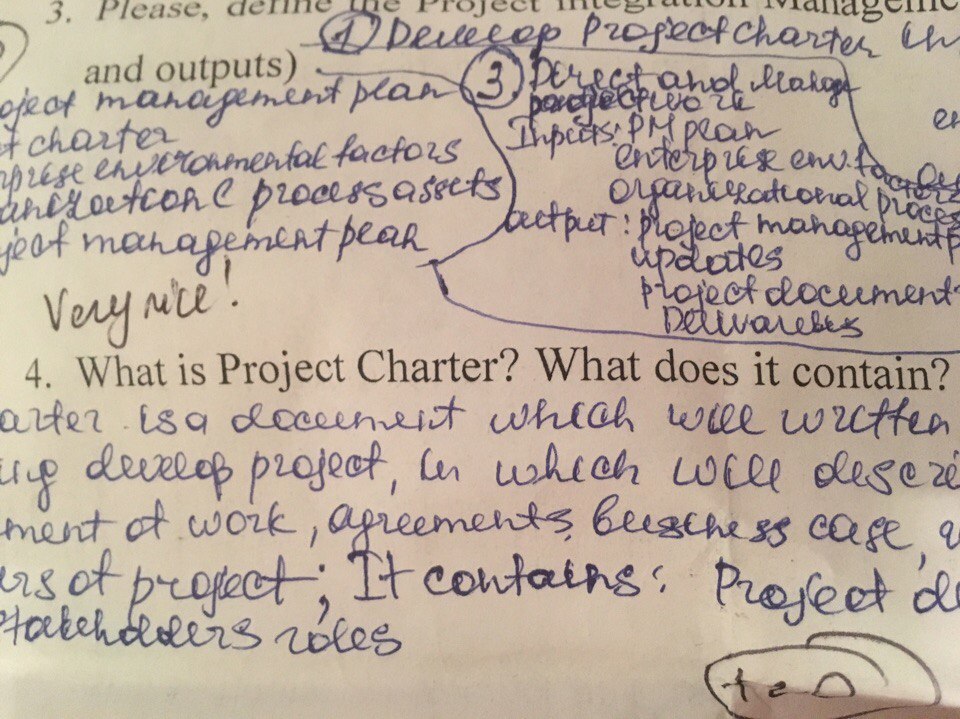 3. Please, define the Project Integration Manageme
① Develop Project Charter
and outputs)
oject management plan
t charter
rprise environmental factors
anization C process assets
ject management plan
③ Direct and Manage
project work
Inputs: PM plan
enterprise env. factors
organizational proces
output: project management p
updates
project document
Delivarebles
Very nice!
4. What is Project Charter? What does it contain?
arter is a document which will written
ing develop project, in which will descri
ment of work, agreements, business case,
ers of project; It contains: Project de
stakeholders roles